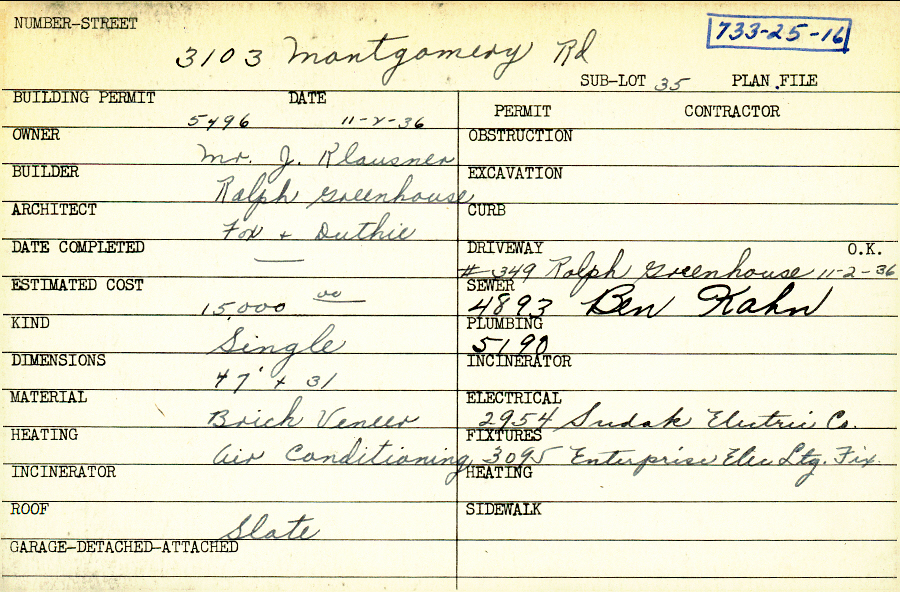 NUMBER-STREET
733-25-16
3103 Montgomery Rd
SUB-LOT 35 PLAN FILE
BUILDING PERMIT DATE
5496 11-2-36
OWNER
Mr. J. Klausner
BUILDER
Ralph Greenhouse
ARCHITECT
Fox + Duthie
DATE COMPLETED
—
ESTIMATED COST
15,000 00
KIND
Single
DIMENSIONS
47' x 31
MATERIAL
Brick Veneer
HEATING
Air Conditioning
INCINERATOR
ROOF
Slate
GARAGE-DETACHED-ATTACHED
PERMIT CONTRACTOR
OBSTRUCTION
EXCAVATION
CURB
DRIVEWAY O.K.
# 349 Ralph Greenhouse 11-2-36
SEWER
4893 Ben Kahn
PLUMBING
5190
INCINERATOR
ELECTRICAL
2954 Sudak Electric Co.
FIXTURES
3095 Enterprise Elec Ltg. Fix.
HEATING
SIDEWALK